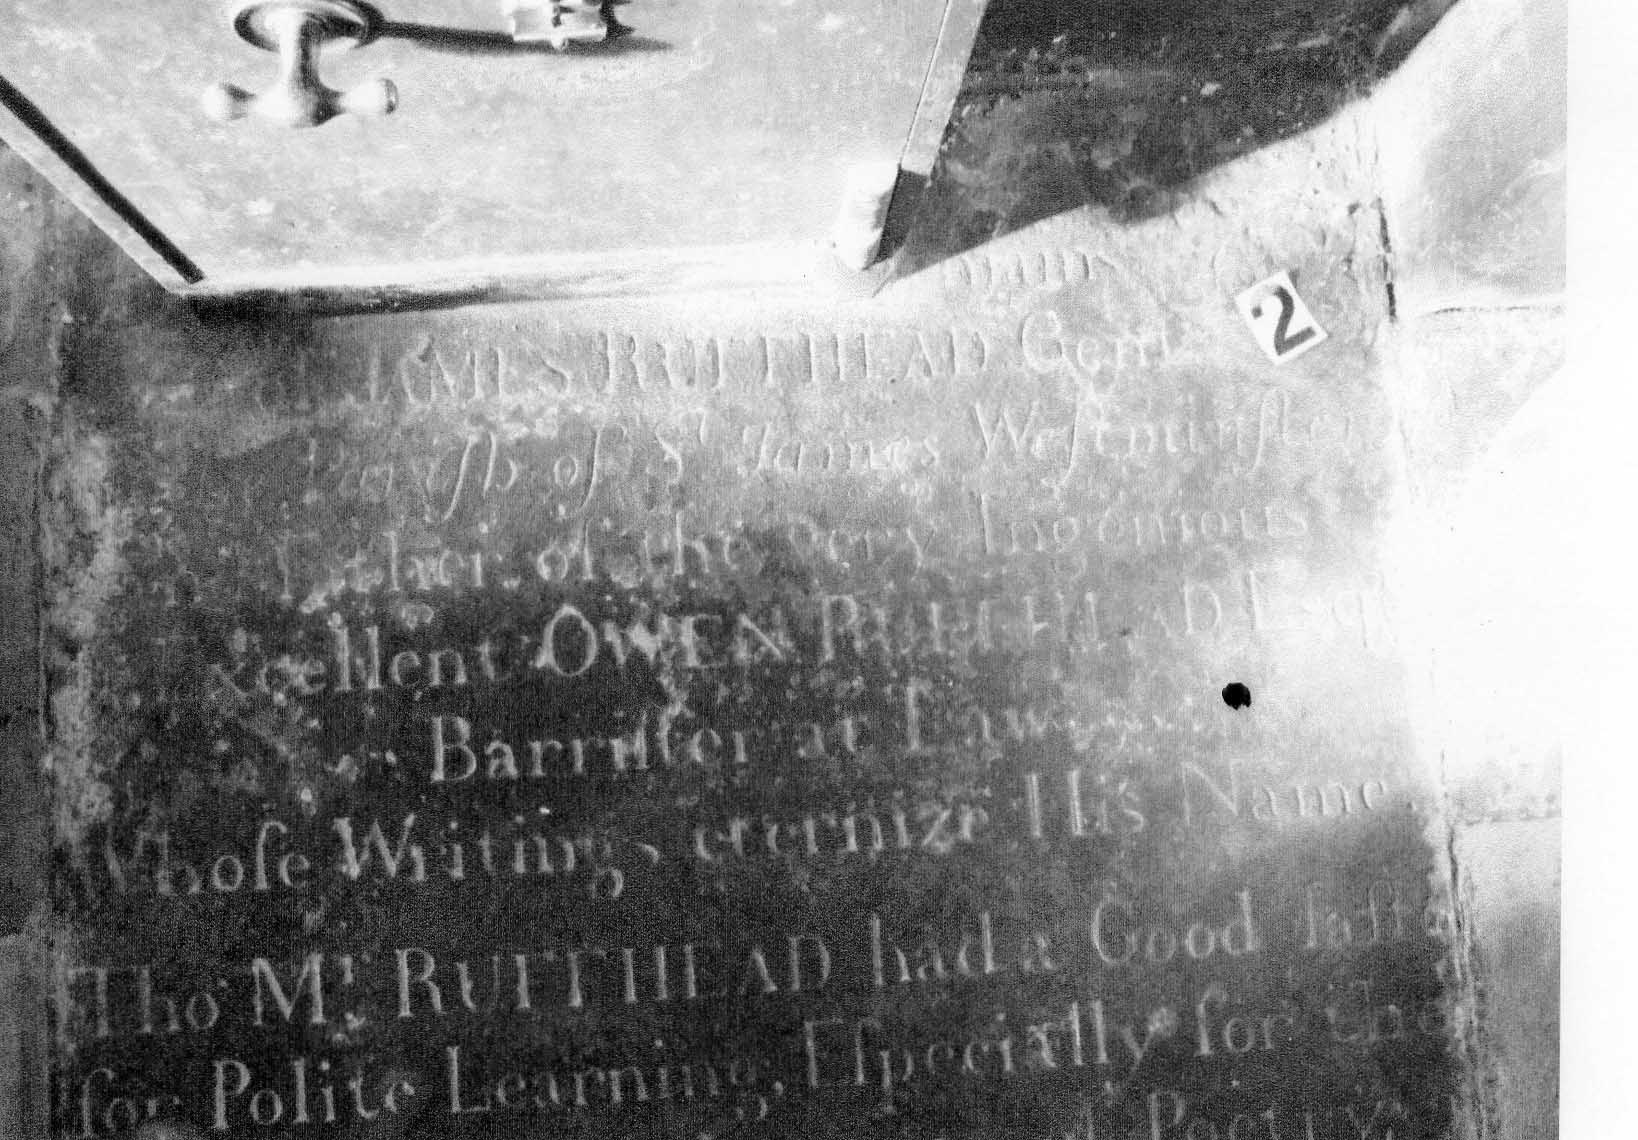 2
JAMES RUFFHEAD Gent
Paryſh of St James Weſtminſter
Father of the very Ingenious
Excellent OWEN RUFFHEAD Esq
Barriſter at Law
Whoſe Writings eternize His Name.
Tho' Mr RUFFHEAD had a Good taſte
for Polite Learning, Eſpecially for the
Poetry